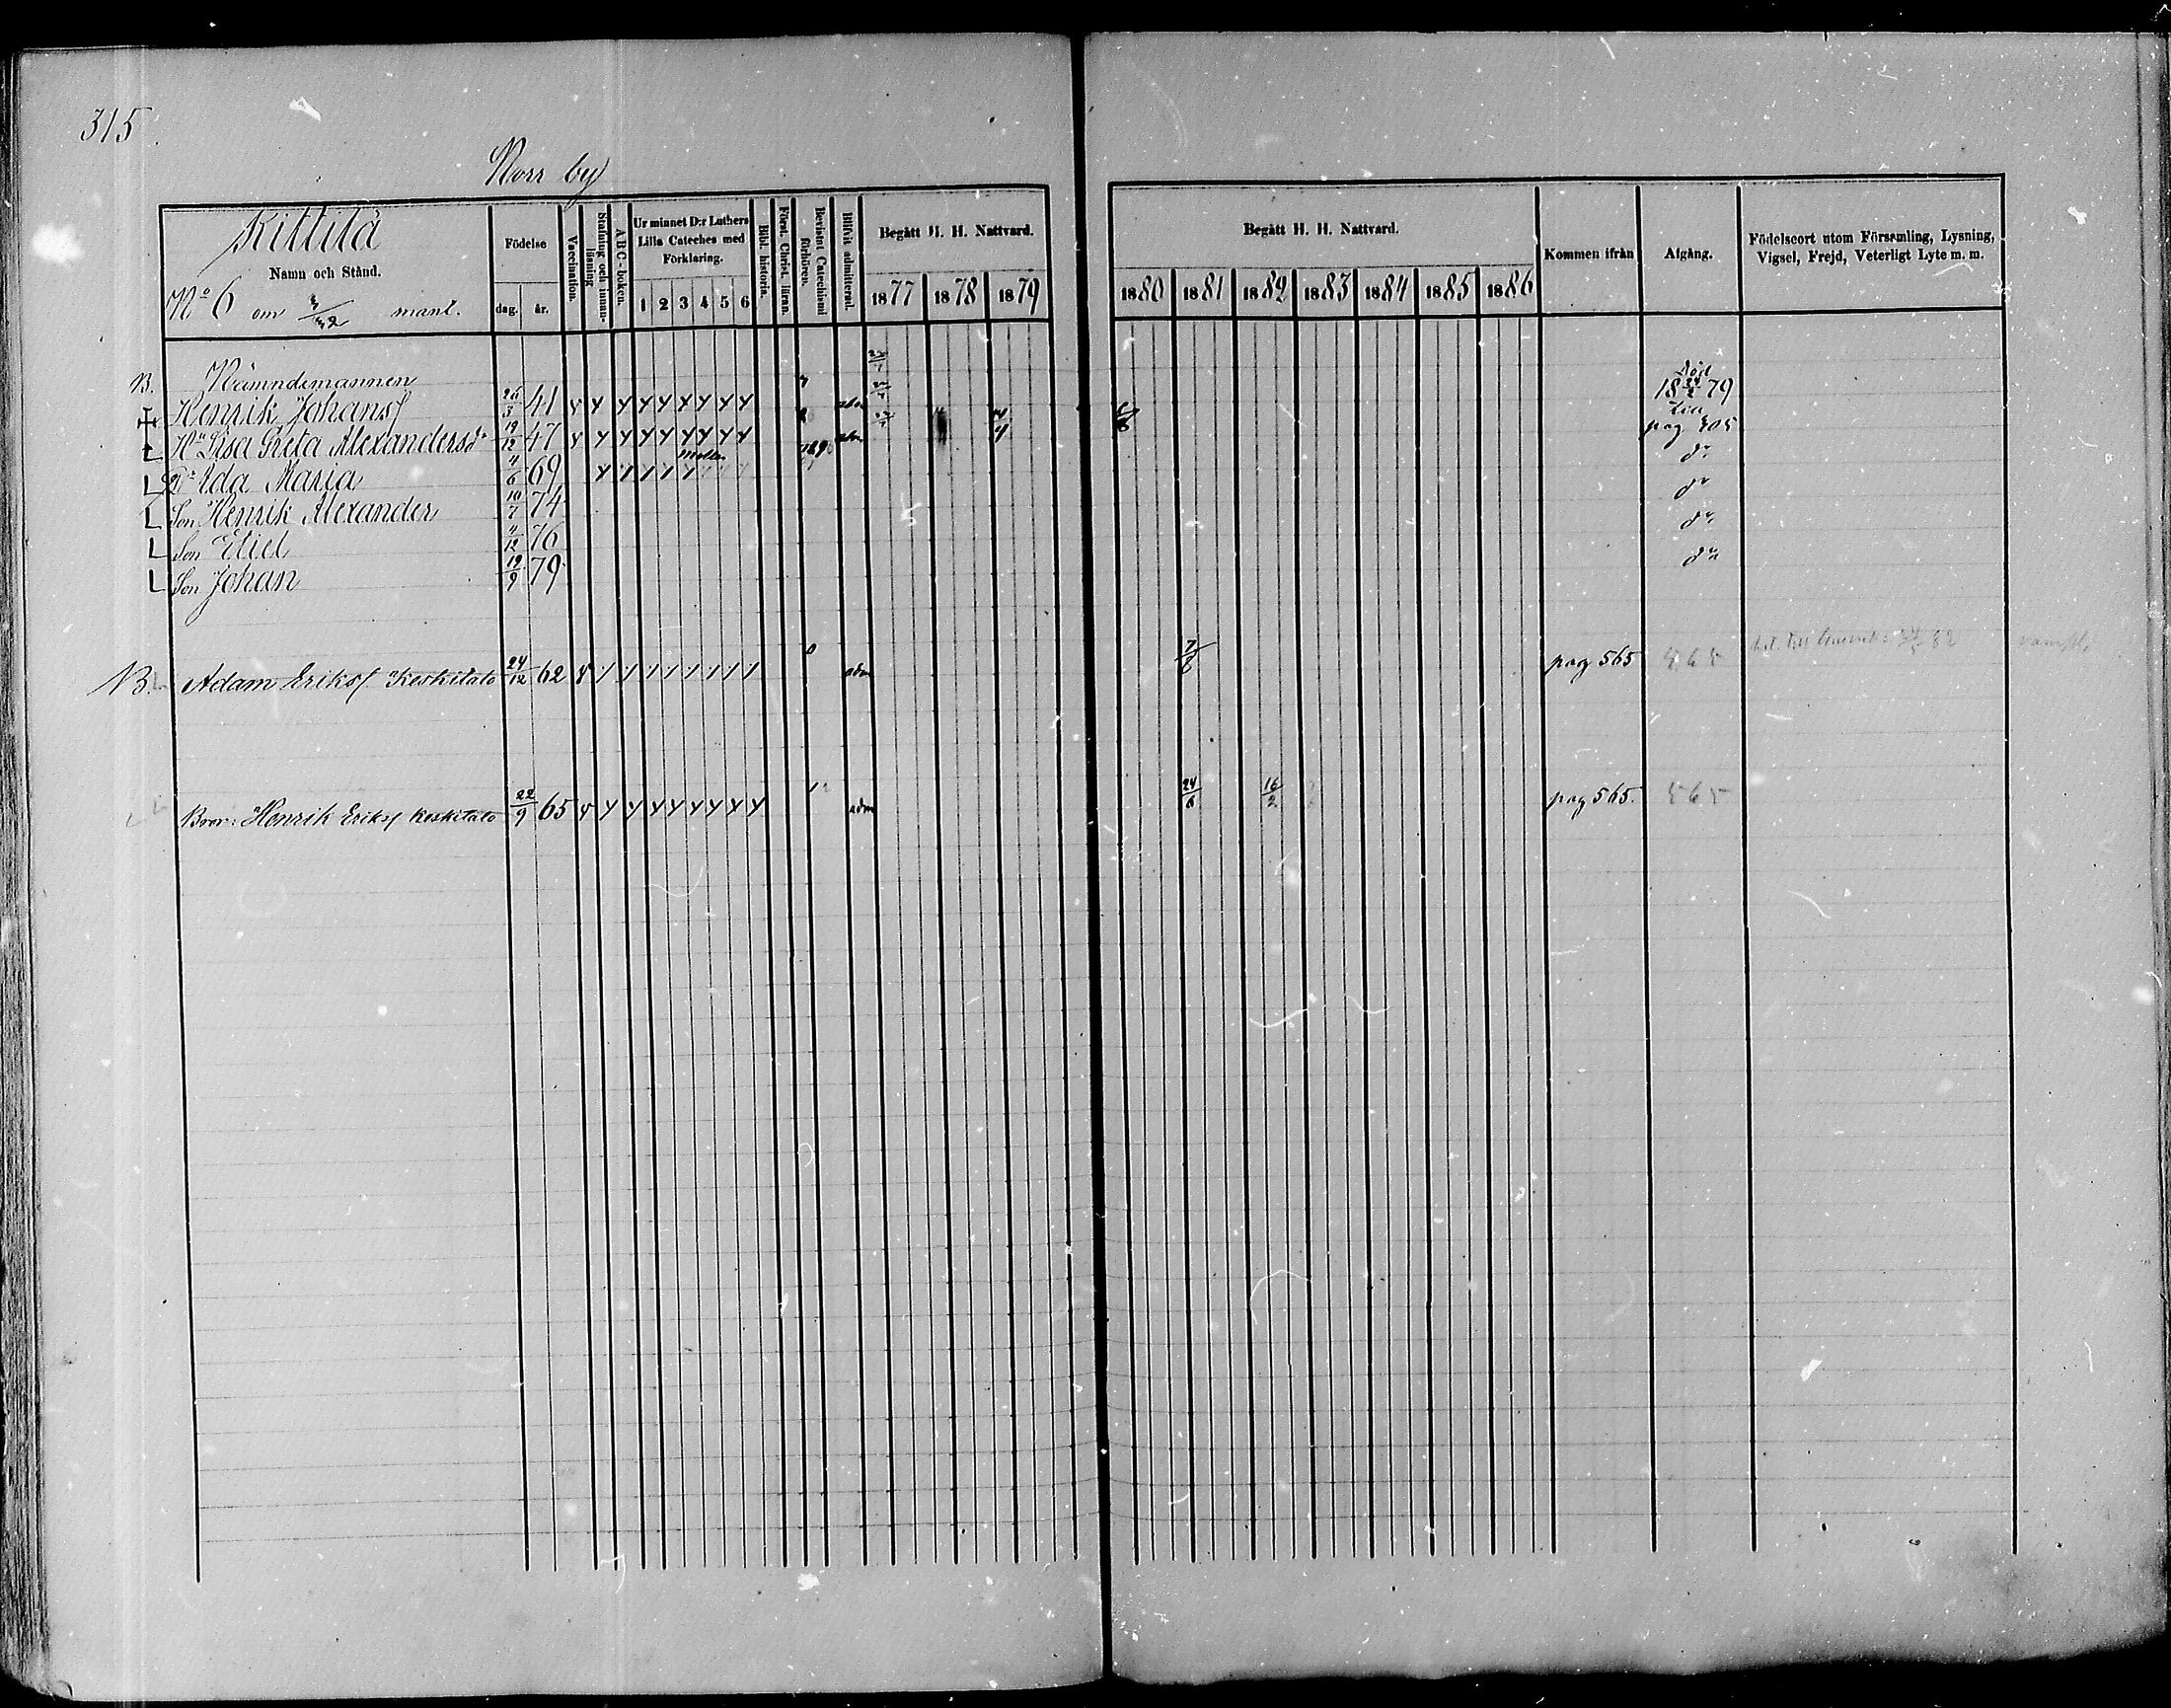 315
Norr by
Kittilä
Namn och Stånd.
No 6 om mant.
Födelse
dag. år.
Vaccination.
Stafning och innan-läsning
A B C-boken.
Ur minnet D:r Luthers Lilla Cateches med Förklaring.
1 2 3 4 5 6
Bibl. historia.
Först. Christ. läran.
Bevisint Catechismi förhören.
Blifvit admitterad.
Begått H. H. Nattvard.
1877 1878 1879
Begått H. H. Nattvard.
1880 1881 1882 1883 1884 1885 1886
Kommen ifrån
Afgång.
Födelseort utom Församling, Lysning, Vigsel, Frejd, Veterligt Lyte m. m.
B. Nämndemannen
Henrik Johansf 26/3 41 Död 18 24/2 79
Hu Lisa Greta Alexandersdr 19/12 47 adm 4/4 6/6 pag 405
Dr Ida Maria 4/6 69 do
Son Henrik Alexander 10/7 74 do
Son Etiel 4/12 76 do
Son Johan 19/9 79 do
B. Adam Eriksf Keskitalo 24/12 62 adm 7/8 pag 565 565
Bror: Henrik Eriksf Keskitalo 22/9 65 adm 24/6 16/2 pag 565. 565